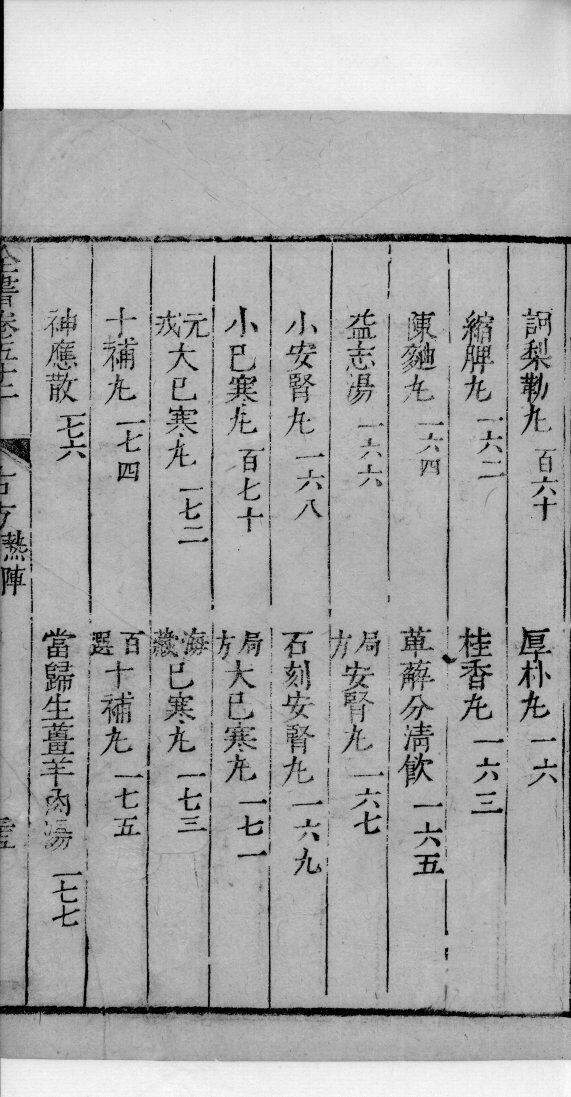 訶梨勒丸 百六十 厚朴丸 一六
縮脾丸 一六二 桂香丸 一六三
陳麯丸 一六四 萆薢分清飲 一六五
益志湯 一六六 局方安腎丸 一六七
小安腎丸 一六八 石刻安腎丸 一六九
小巳寒丸 百七十 局方大巳寒丸 一七一
元戎大巳寒丸 一七二 海藏巳寒丸 一七三
十補丸 一七四 百選十補丸 一七五
神應散 一七六 當歸生薑羊肉湯 一七七
全書卷五十 古方 熱陣